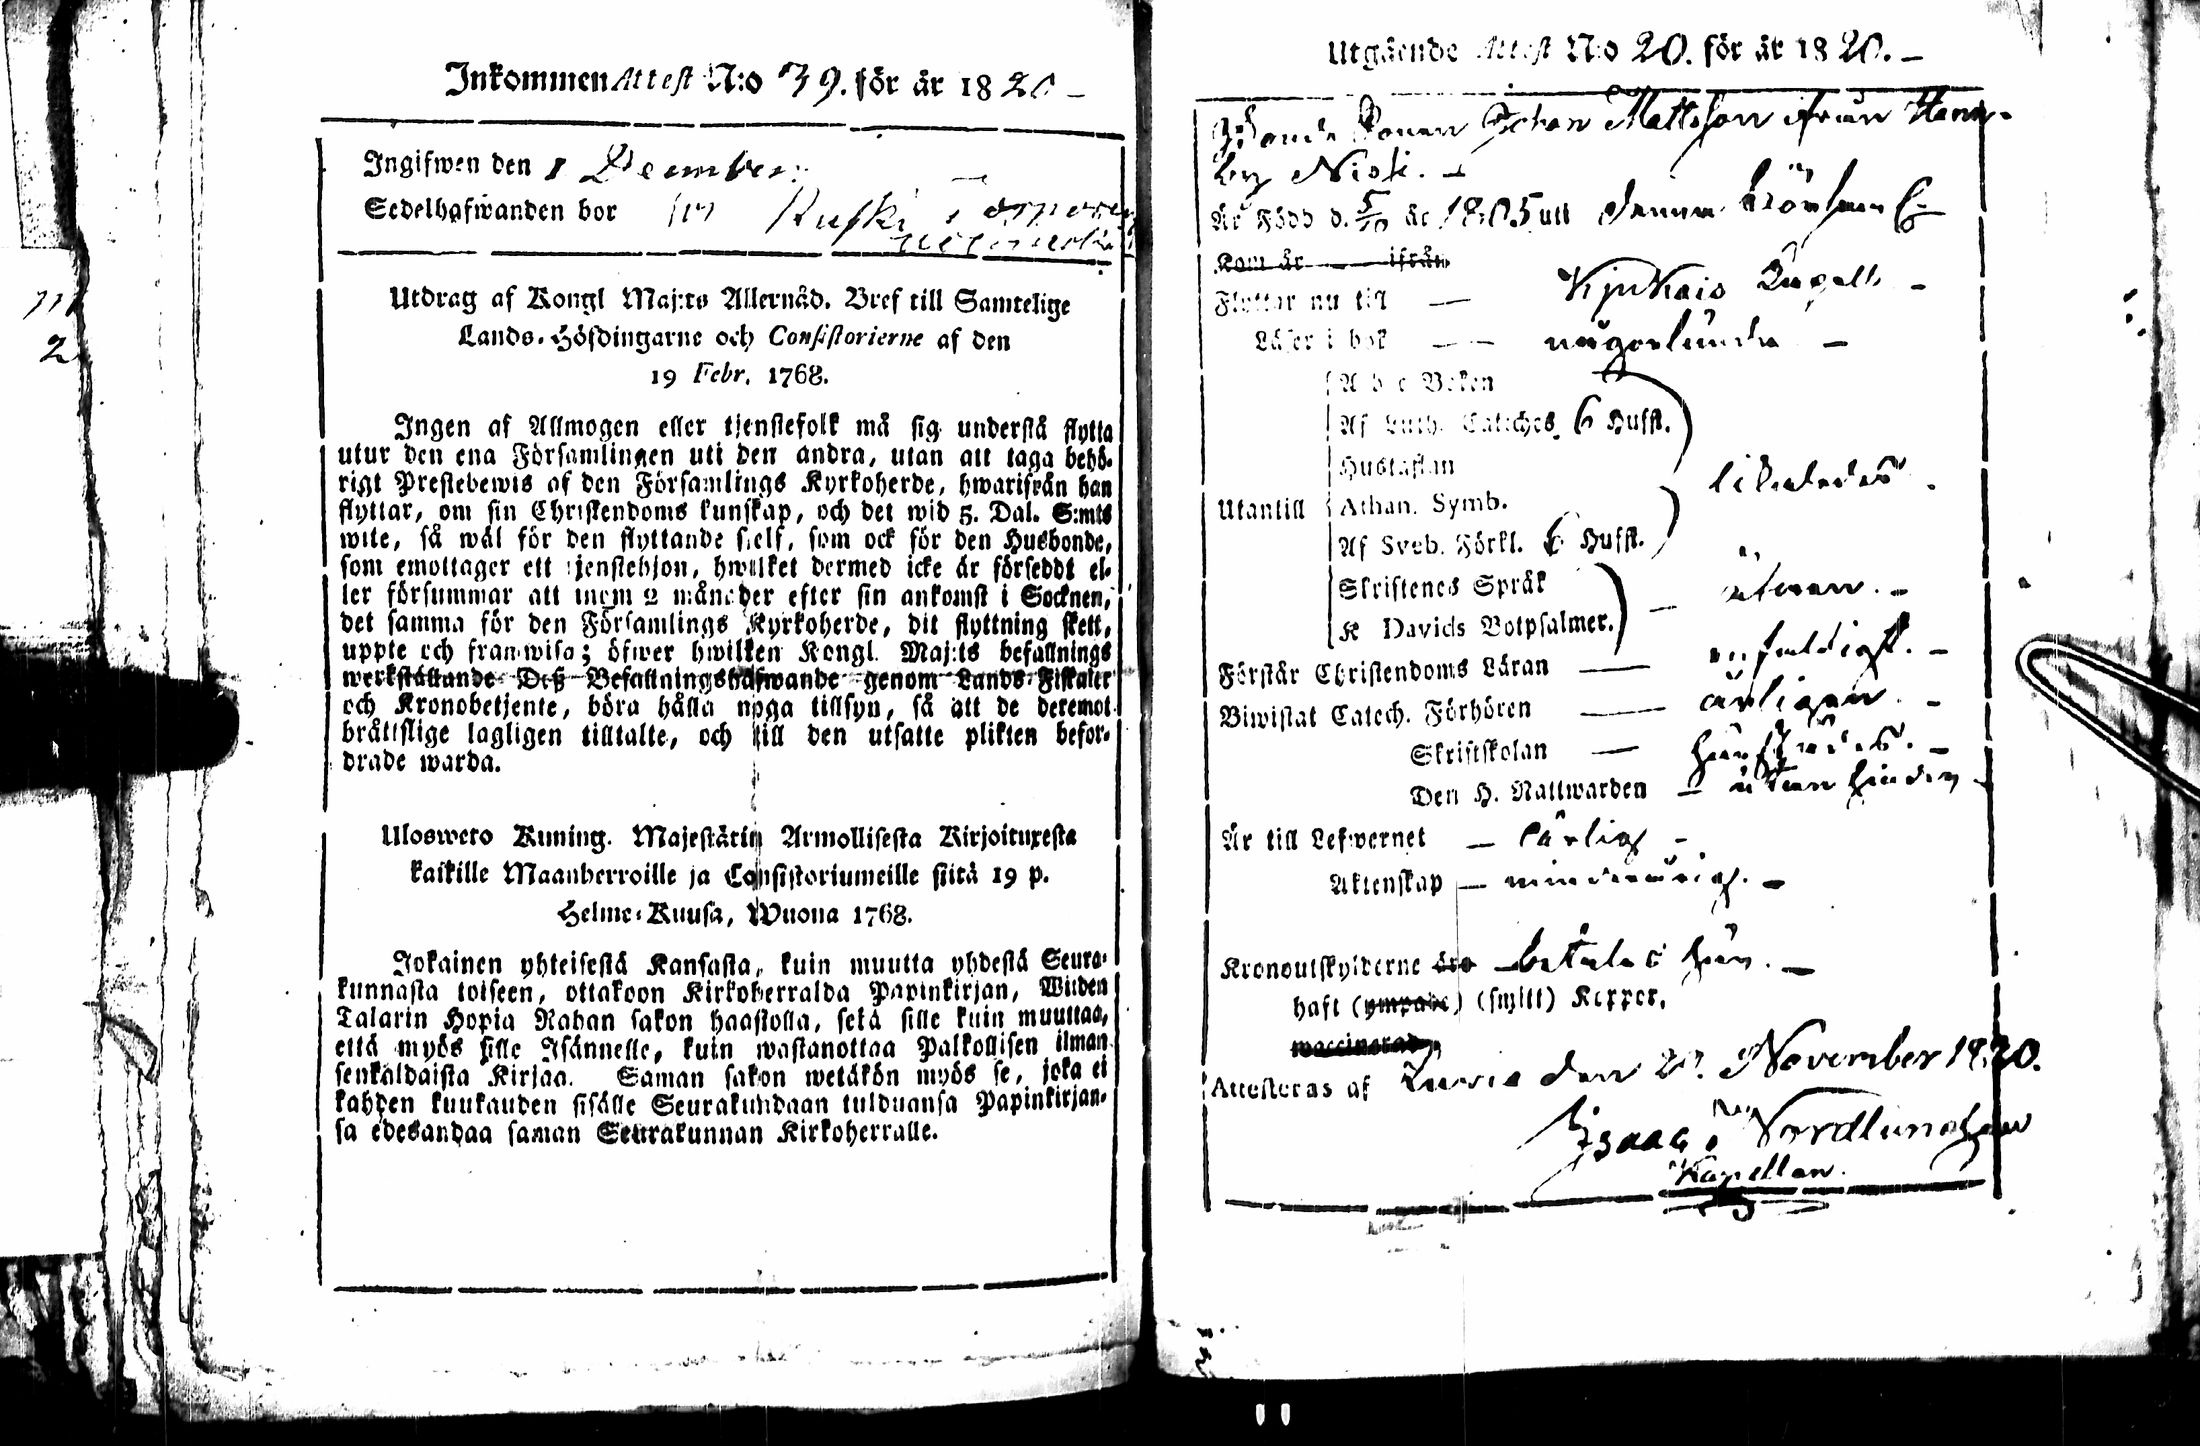 Inkommen Attest N:o 39. för år 1820 –
Ingifwen den 1 December
Sedelhafwanden bor
Utdrag af Kongl Maj:ts Allernåd. Bref till Samtelige
Lands-Höfdingarne och Consistorierne af den
19 Febr. 1768.
Ingen af Allmogen eller tjenstefolk må sig understå flytta
utur den ena Församlingen uti den andra, utan att taga behö-
rigt Prestebewis af den Församlings Kyrkoherde, hwarifrån han
flyttar, om sin Christendoms kunskap, och det wid 5. Dal. S:mts
wite, så wäl för den flyttande sjelf, som ock för den Husbonde,
som emottager ett tjenstehjon, hwilket dermed icke är försedt el-
ler försummar att inom 2 månader efter sin ankomst i Socknen,
det samma för den Församlings Kyrkoherde, dit flyttning skett,
uppte och framwisa; öfwer hwilken Kongl. Maj:ts befallnings
werkställande Deß Befallningshafwande genom Lands-Fiskaler
och Kronobetjente, böra hålla noga tillsyn, så att de deremot
bråttslige lagligen tilltalte, och till den utsatte plikten befor-
drade warda.
Uloswero Kuning. Majestätin Armollisesta Kirjoituxesta
kaikille Maanherroille ja Consistoriumeille siitä 19 p.
Helme-Kuusa, Wuona 1768.
Jokainen yhteisestä Kansasta, kuin muutta yhdestä Seura-
kunnasta toiseen, ottakoon Kirkoherralda Papinkirjan, Wiiden
Talarin Hopia Rahan sakon haastolla, sekä sille kuin muuttaa,
että myös sille Isännelle, kuin wastanottaa Palkollisen ilman
senkaldaista Kirjaa. Saman sakon wetäkön myös se, joka ei
kahden kuukauden sisälle Seurakundaan tulduansa Papinkirjan-
sa edesandaa saman Seurakunnan Kirkoherralle.
Utgående Attest N:o 20. för år 1820. –
Johan Mattsson ifrån
by
Är Född d. 5/10 år 1805 utt
Kom år ifrån
Flyttar nu till — Kjukais Capell –
Läser i bok — — någorlunda –
A b c Boken
Af Luth. Cateches. 6 Hufst.
Hustaflan
likaledes
Utantill Athan. Symb.
Af Sveb. Förkl. 6 Hufst.
Skriftenes Språk
K Davids Botpsalmer. — utan. –
Förstår Christendoms Läran — enfaldigt. –
Biwistat Catech. Förhören — årligen. –
Skriftskolan —
Den H. Nattwarden – utan hinder –
Är till Lefwernet – ärlig –
Äktenskap – minderårig. –
Kronoutskylderne äro – betalas här. –
haft (ympade) (smitt) Koppor,
waccinerad
Attesteras af den 20. November 1820.
Isaac Nordlund
Kapellan.